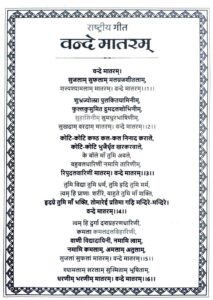 राष्ट्रीय गीत
वन्दे मातरम्
वन्दे मातरम्।
सुजलाम् सुफलाम् मलयजशीतलाम्,
शस्यश्यामलाम् मातरम्। वन्दे मातरम्।।1।।
शुभ्रज्योत्स्ना पुलकितयामिनीम्,
फुल्लकुसुमित द्रुमदलशोभिनीम्,
सुहासिनीम् सुमधुरभाषिणीम्,
सुखदाम् वरदाम् मातरम्। वन्दे मातरम्।।2।।
कोटि-कोटि कण्ठ कल-कल निनाद कराले,
कोटि-कोटि भुजैर्धृत खरकरवाले,
के बॉले माँ तुमि अबले,
बहुबलधारिणीं नमामि तारिणीम्,
रिपुदलवारिणीं मातरम्। वन्दे मातरम्।।3।।
तुमि विद्या तुमि धर्म, तुमि हृदि तुमि मर्म,
त्वम् हि प्राणाः शरीरे, बाहुते तुमि माँ शक्ति,
हृदये तुमि माँ भक्ति, तोमारेई प्रतिमा गढ़ि मन्दिरे-मन्दिरे।
वन्दे मातरम्।।4।।
त्वम् हि दुर्गा दशप्रहरणधारिणीं,
कमला कमलदलविहारिणीं,
वाणी विद्यादायिनीं, नमामि त्वाम्,
नमामि कमलाम्, अमलाम् अतुलाम्,
सुजलां सुफलां मातरम्। वन्दे मातरम्।।5।।
श्यामलाम् सरलाम् सुस्मिताम् भूषिताम्,
धरणीम् भरणीम् मातरम्। वन्दे मातरम्।।6।।